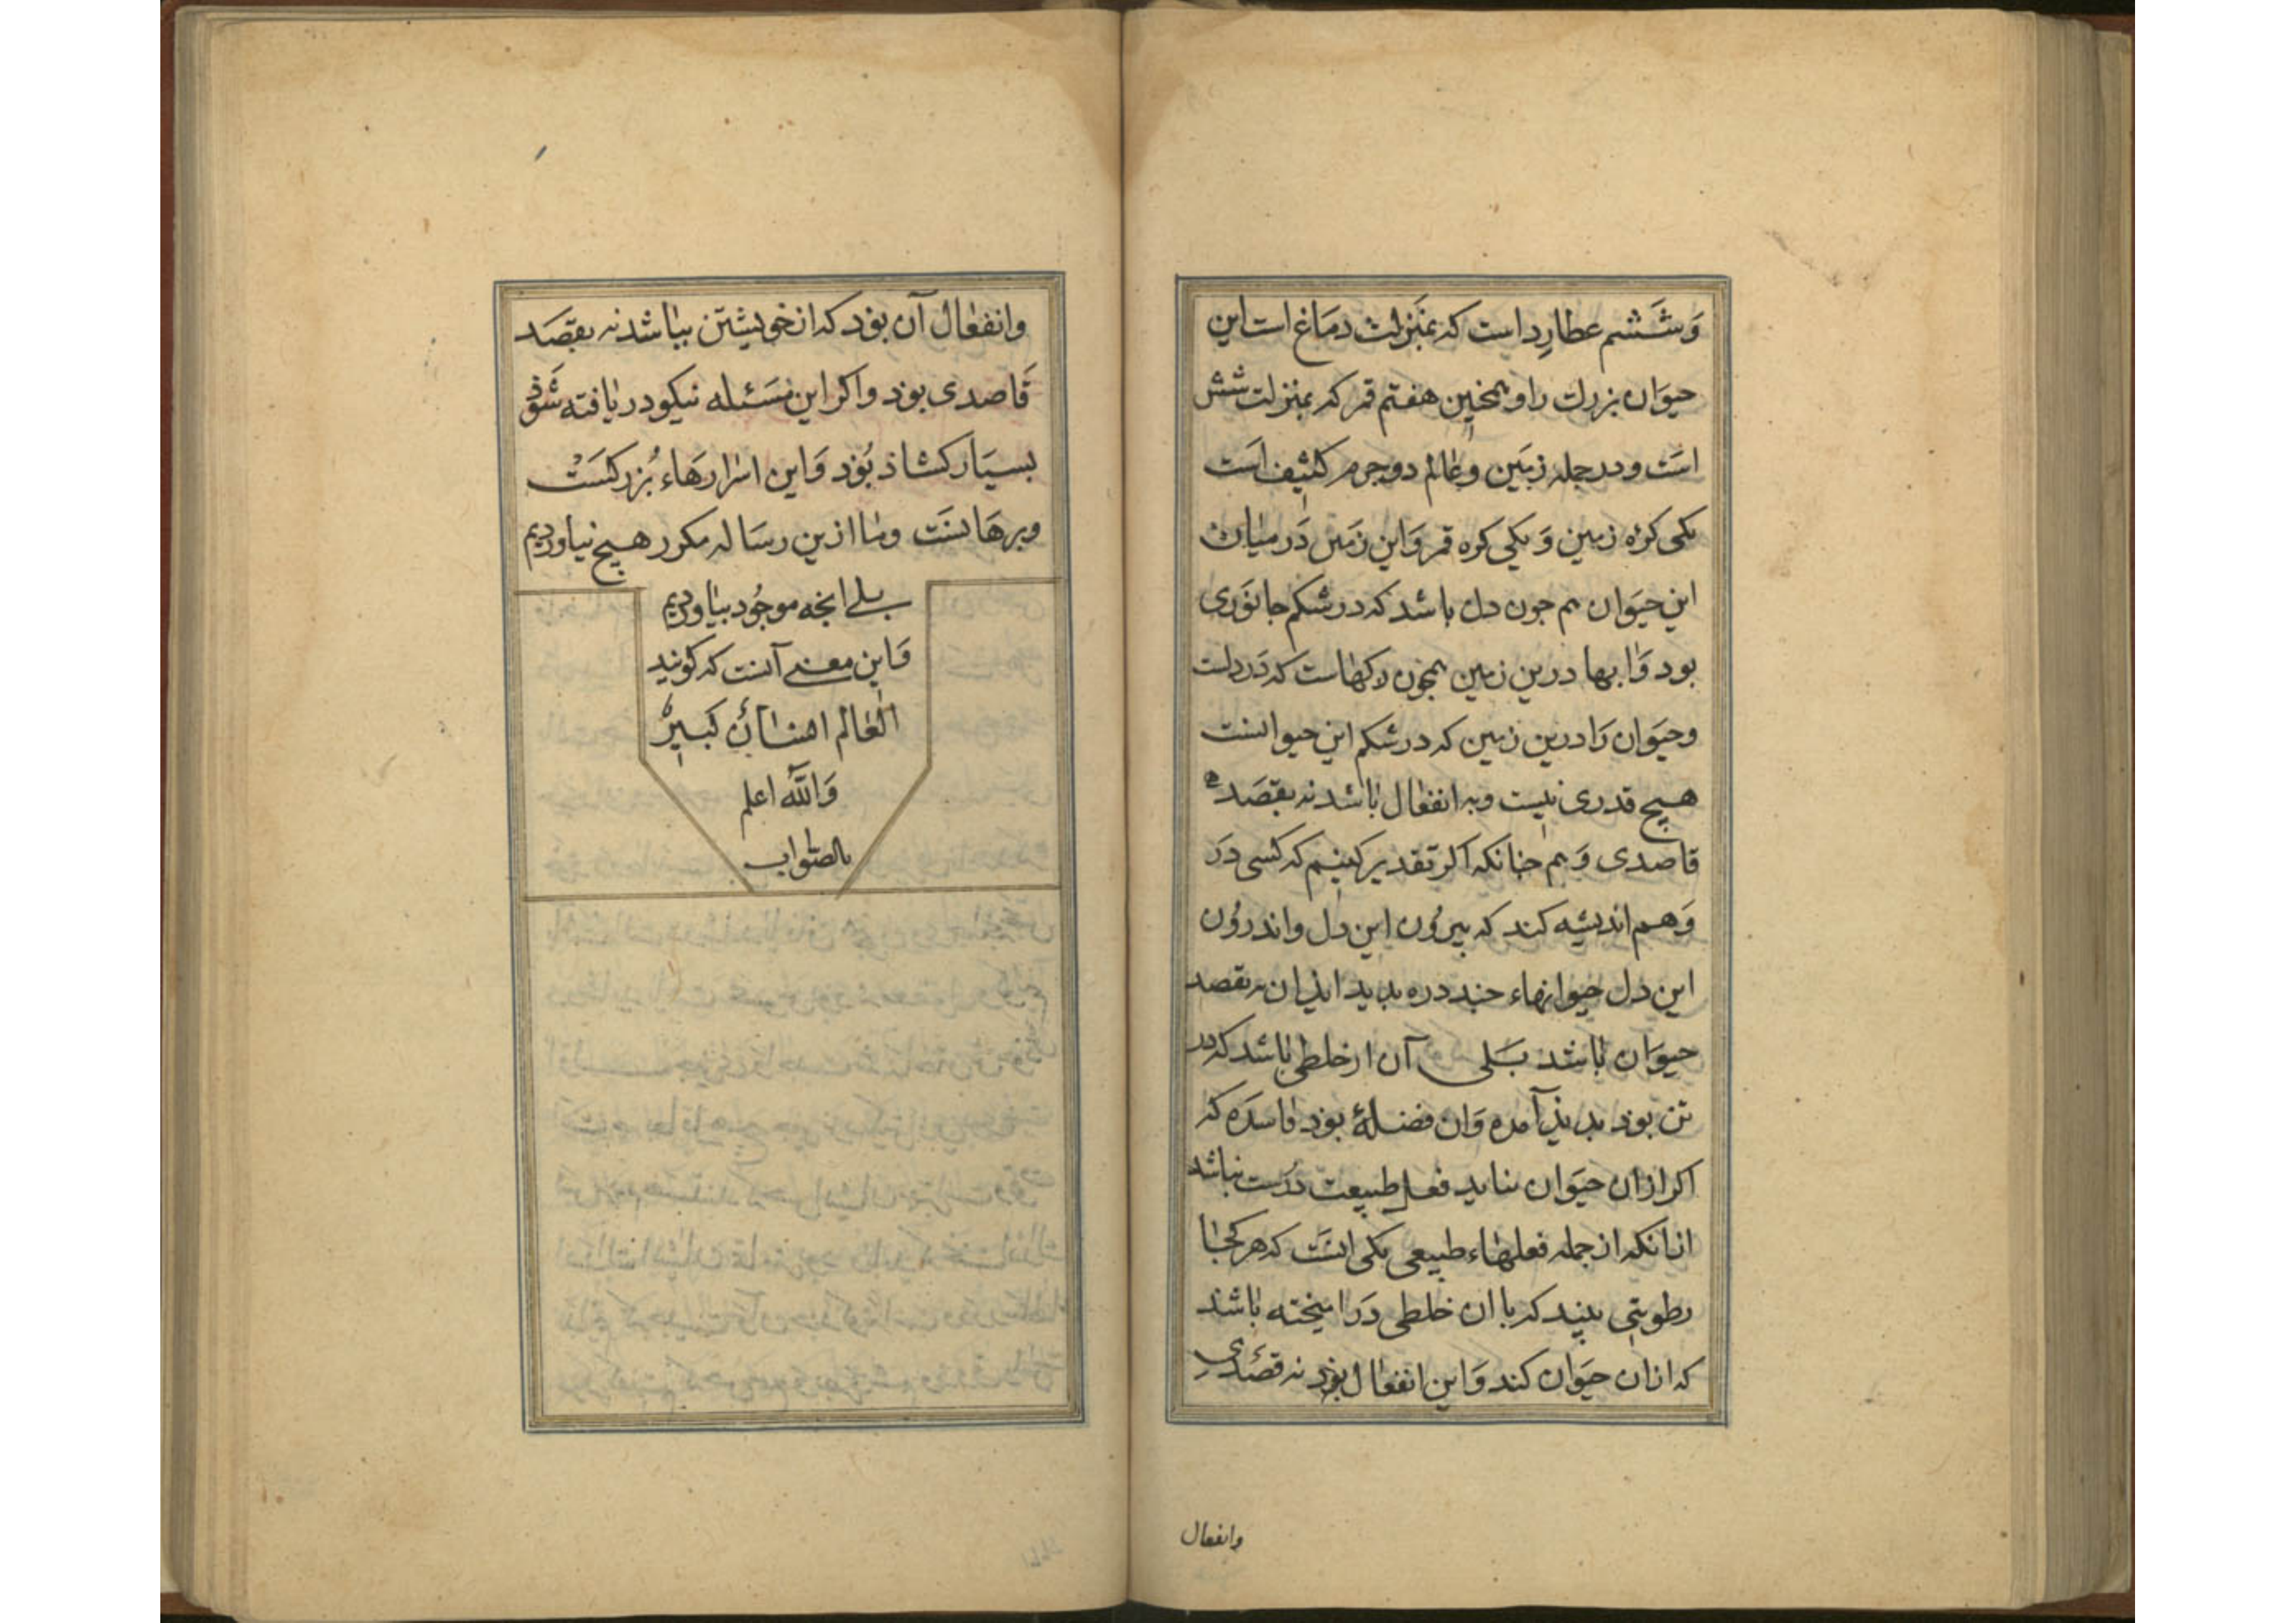 وَششم عطارد است که بمنزلت دماغ است این
حیوان بزرك را و همچنین هفتم قمر که بمنزلت شش
است و در جمله زمین و عالم دو جرم کثیف است
یکی کره زمین وَ یکی کره قمر وَ این زمین دَر میان
این حیوان هم جون دل باشد که در شکم جانوری
بود وَ ابها درین زمین همچون رکهاست که دَر دلست
و حیوان رَا درین زمین که در شکم این حیوانست
هیچ قدری نیست و به انفعال باشد نه بقصد
قاصدی وَ هم جنانکه اکر تقدیر کنیم که کسی دَر
وَهم اندیشه کند که بیرون این دل و اندرون
این دل حیوانهاء جند دره بدید اید ان نه بقصد
حیوان باشد بلی آن از خلطی باشد که در
تن بود بدیذ آمده وَ ان فضلهٔ بوذ فاسده که
اکر ازان حیوان نیاید فعل طبیعت درست نباشد
ازانکه از جمله فعلهاء طبیعی یکی انست که هر کجا
رطوبتی بیند که با ان خلطی دَر امیخته باشد
که ازان حیوان کند وَ این انفعال بوذ نه قصدی
وانفعال
وانفعال آن بوَد که از خویشتن بباشد نه بقصَد
قاصدی بود و اکر این مسَئله نیکو دریافته شوَذ
بسیار کشاذ بُوَد وَ این اسرارهَاء بُزرکسَت
و برهانست و ما ازین رسَاله مکرر هیچ نیاوردیم
بلی انجه موجُود بیاوردیم
وَ این معنی آنست که کویند
العالم انسانٌ کبیرٌ
وَالله اعلم
بالصّواب